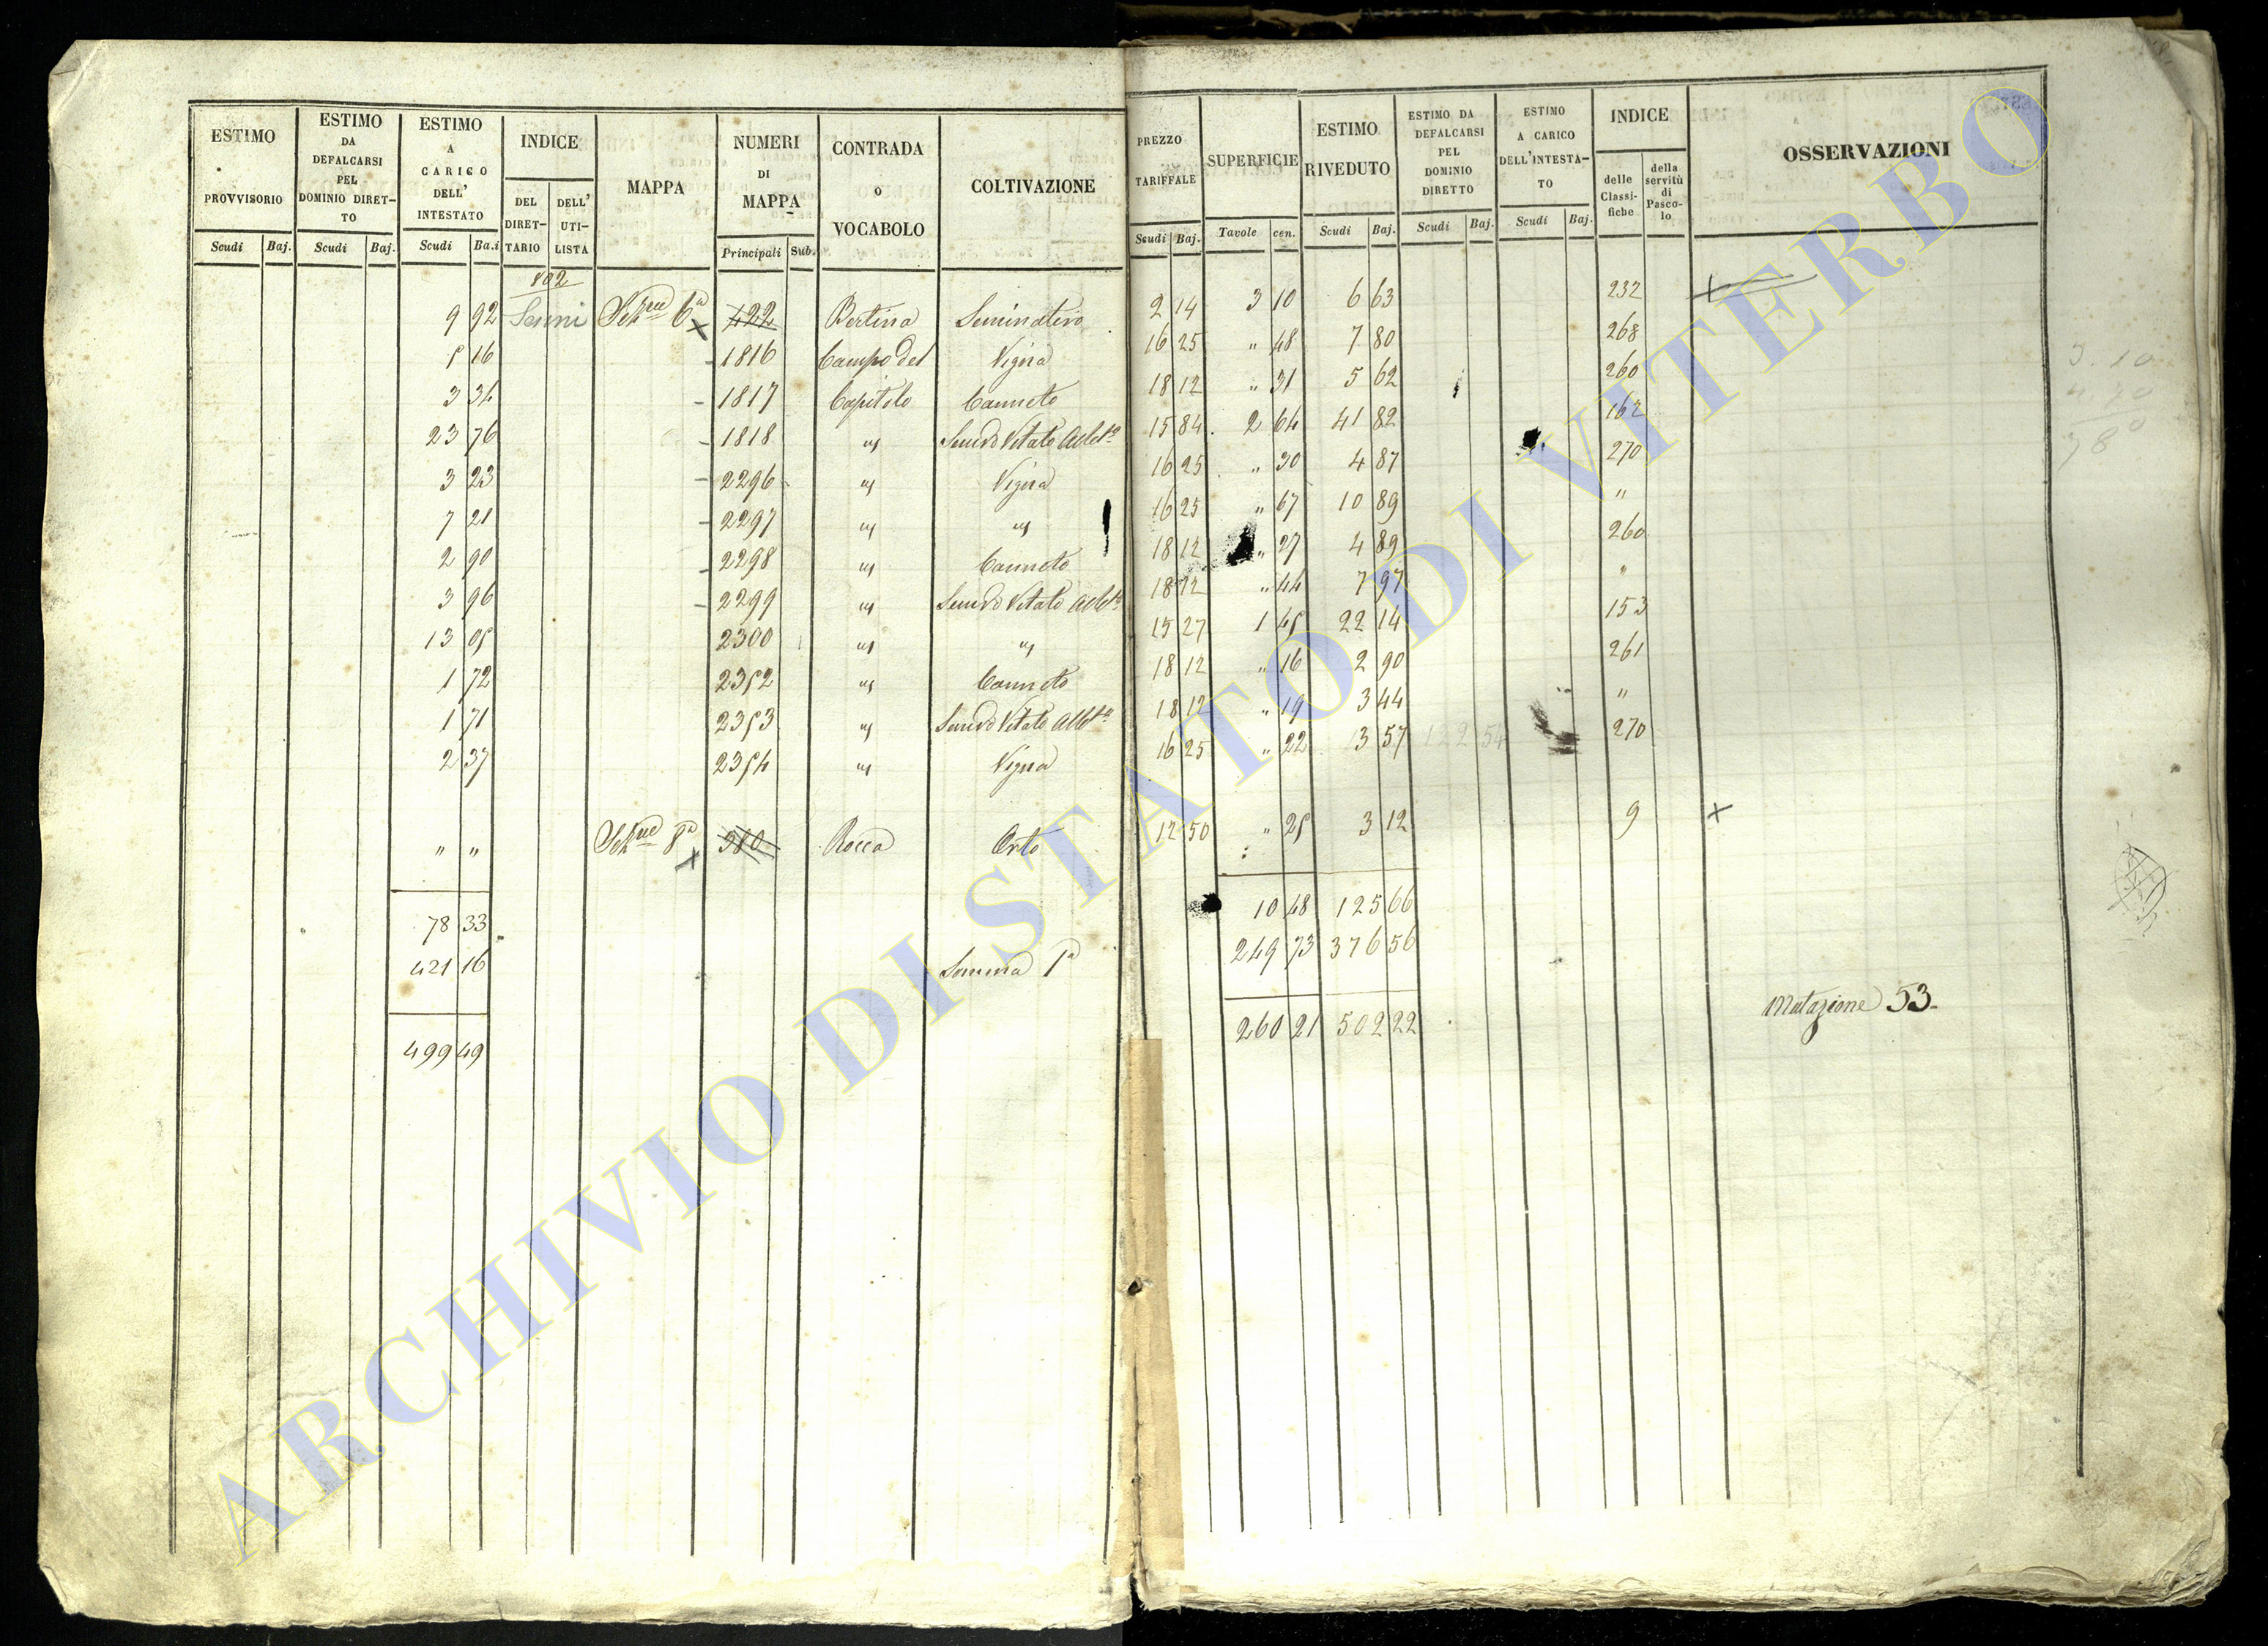 ESTIMO PROVVISORIO Scudi Baj.
ESTIMO DA DEFALCARSI PEL DOMINIO DIRET-TO Scudi Baj.
ESTIMO A CARICO DELL' INTESTATO Scudi Baj
INDICE DEL DIRET-TARIO DELL' UTI-LISTA
MAPPA
NUMERI DI MAPPA Principali Sub.
CONTRADA o VOCABOLO
COLTIVAZIONE
PREZZO TARIFFALE Scudi Baj.
SUPERFICIE Tavole cen.
ESTIMO RIVEDUTO Scudi Baj.
ESTIMO DA DEFALCARSI PEL DOMINIO DIRETTO Scudi Baj.
ESTIMO A CARICO DELL'INTESTA-TO Scudi Baj.
INDICE delle Classi-fiche della servitù di Pasco-lo
OSSERVAZIONI
802
9 92 Senni Sezne 6a 422 Bertina Seminativo 2 14 3 10 6 63 232
5 16 1816 Campo del Vigna 16 25 " 48 7 80 268
3 34 1817 Capitolo Canneto 18 12 " 31 5 62 260
23 76 1818 " 15 84 2 64 41 82 162
3 23 2296 " Vigna 16 25 " 30 4 87 270
7 21 2297 " " 16 25 " 67 10 89 "
2 90 2298 " Canneto 18 12 " 27 4 89 260
3 96 2299 " 18 12 " 44 7 97 "
13 05 2300 " " 15 27 1 45 22 14 153
1 72 2352 " Canneto 18 12 " 16 2 90 261
1 71 2353 " 18 12 " 19 3 44 "
2 37 2354 " Vigna 16 25 " 22 3 57 122 54 270
" " Sezne 8a 380 Rocca Orto 12 50 " 25 3 12 9
78 33 10 48 125 66
421 16 Somma 1a 249 73 376 56
499 49 260 21 502 22
Mutazione 53
3.10
78
ARCHIVIO DI STATO DI VITERBO